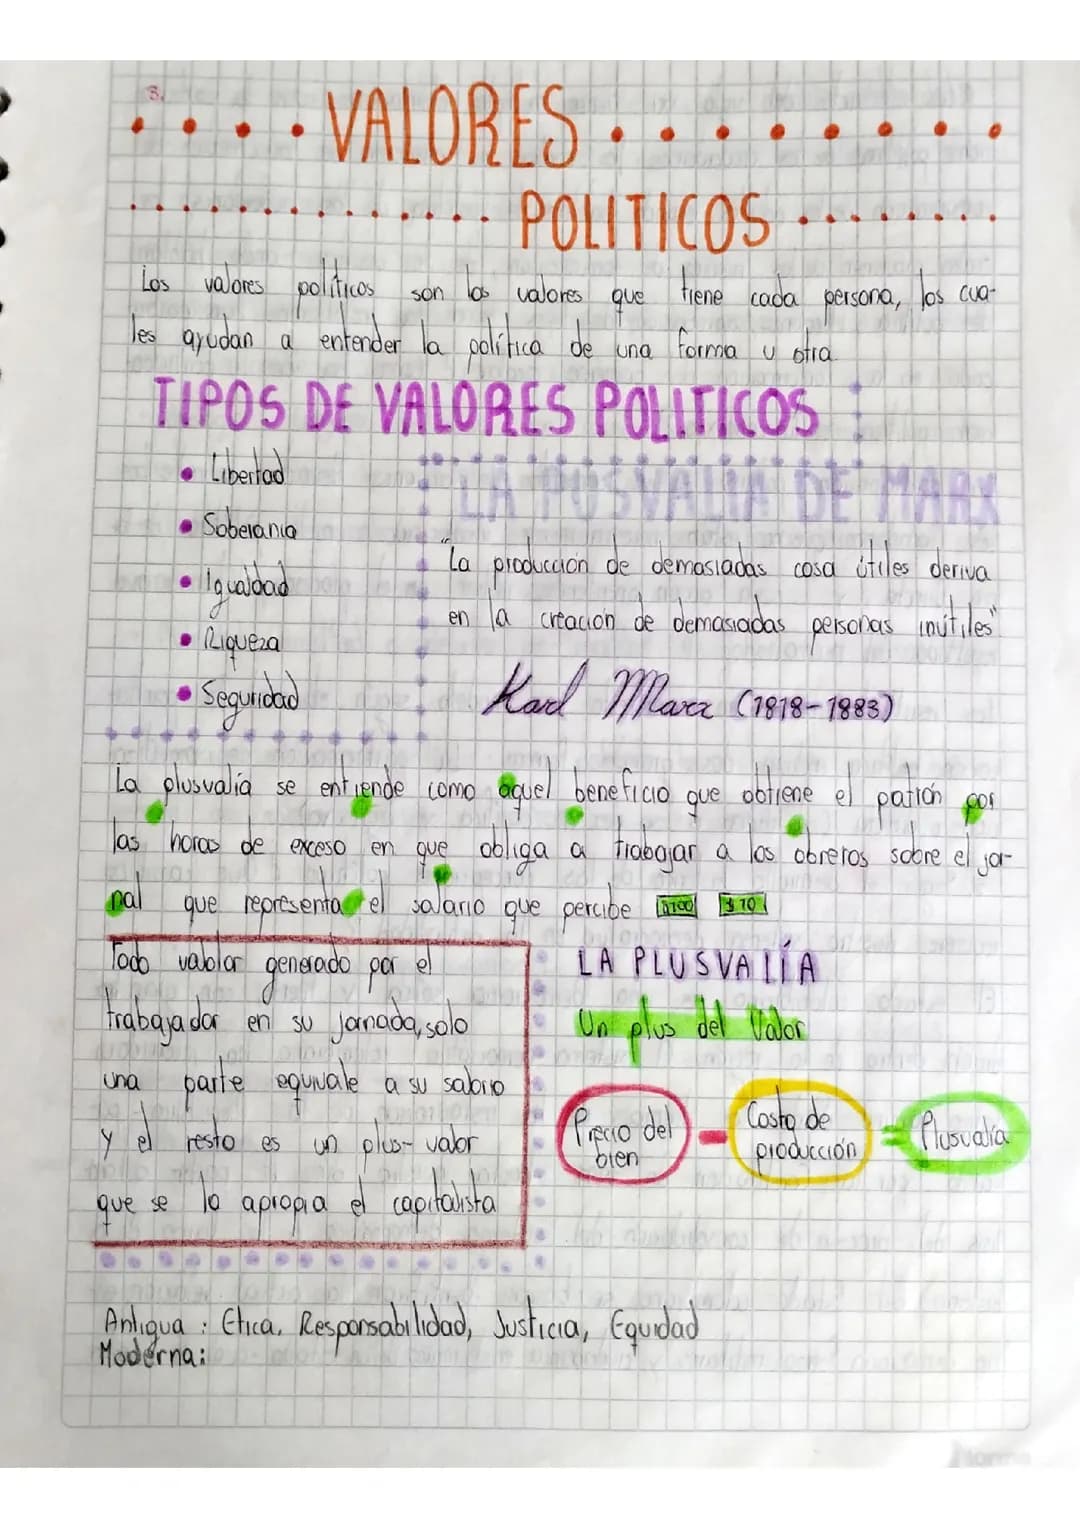 3.
VALORES
POLITICOS
Los valores políticos son los valores que tiene cada persona, los cua-
les ayudan a entender la política de una forma u otra
TIPOS DE VALORES POLITICOS
• Libertad
• Soberania
• Igualdad
• Riqueza
• Seguridad
LA PUSVALIA DE MARX
"La producción de demasiadas cosa útiles deriva
en la creación de demasiadas personas inútiles"
Karl Marx (1818-1883)
La plusvalía se entiende como aquel beneficio que obtiene el patrón por
las horas de exceso en que obliga a trabajar a los obreros sobre el jor-
nal que representa el salario que percibe $100 $10
Todo vablor generado por el
trabajador en su jornada, solo
una parte equivale a su sabrio
y el resto es un plus-valor
que se lo apropia el capitalista
LA PLUSVALÍA
Un plus del Valor
Precio del bien - Costo de producción = Plusvalía
Antigua: Etica, Responsabilidad, Justicia, Equidad
Moderna: